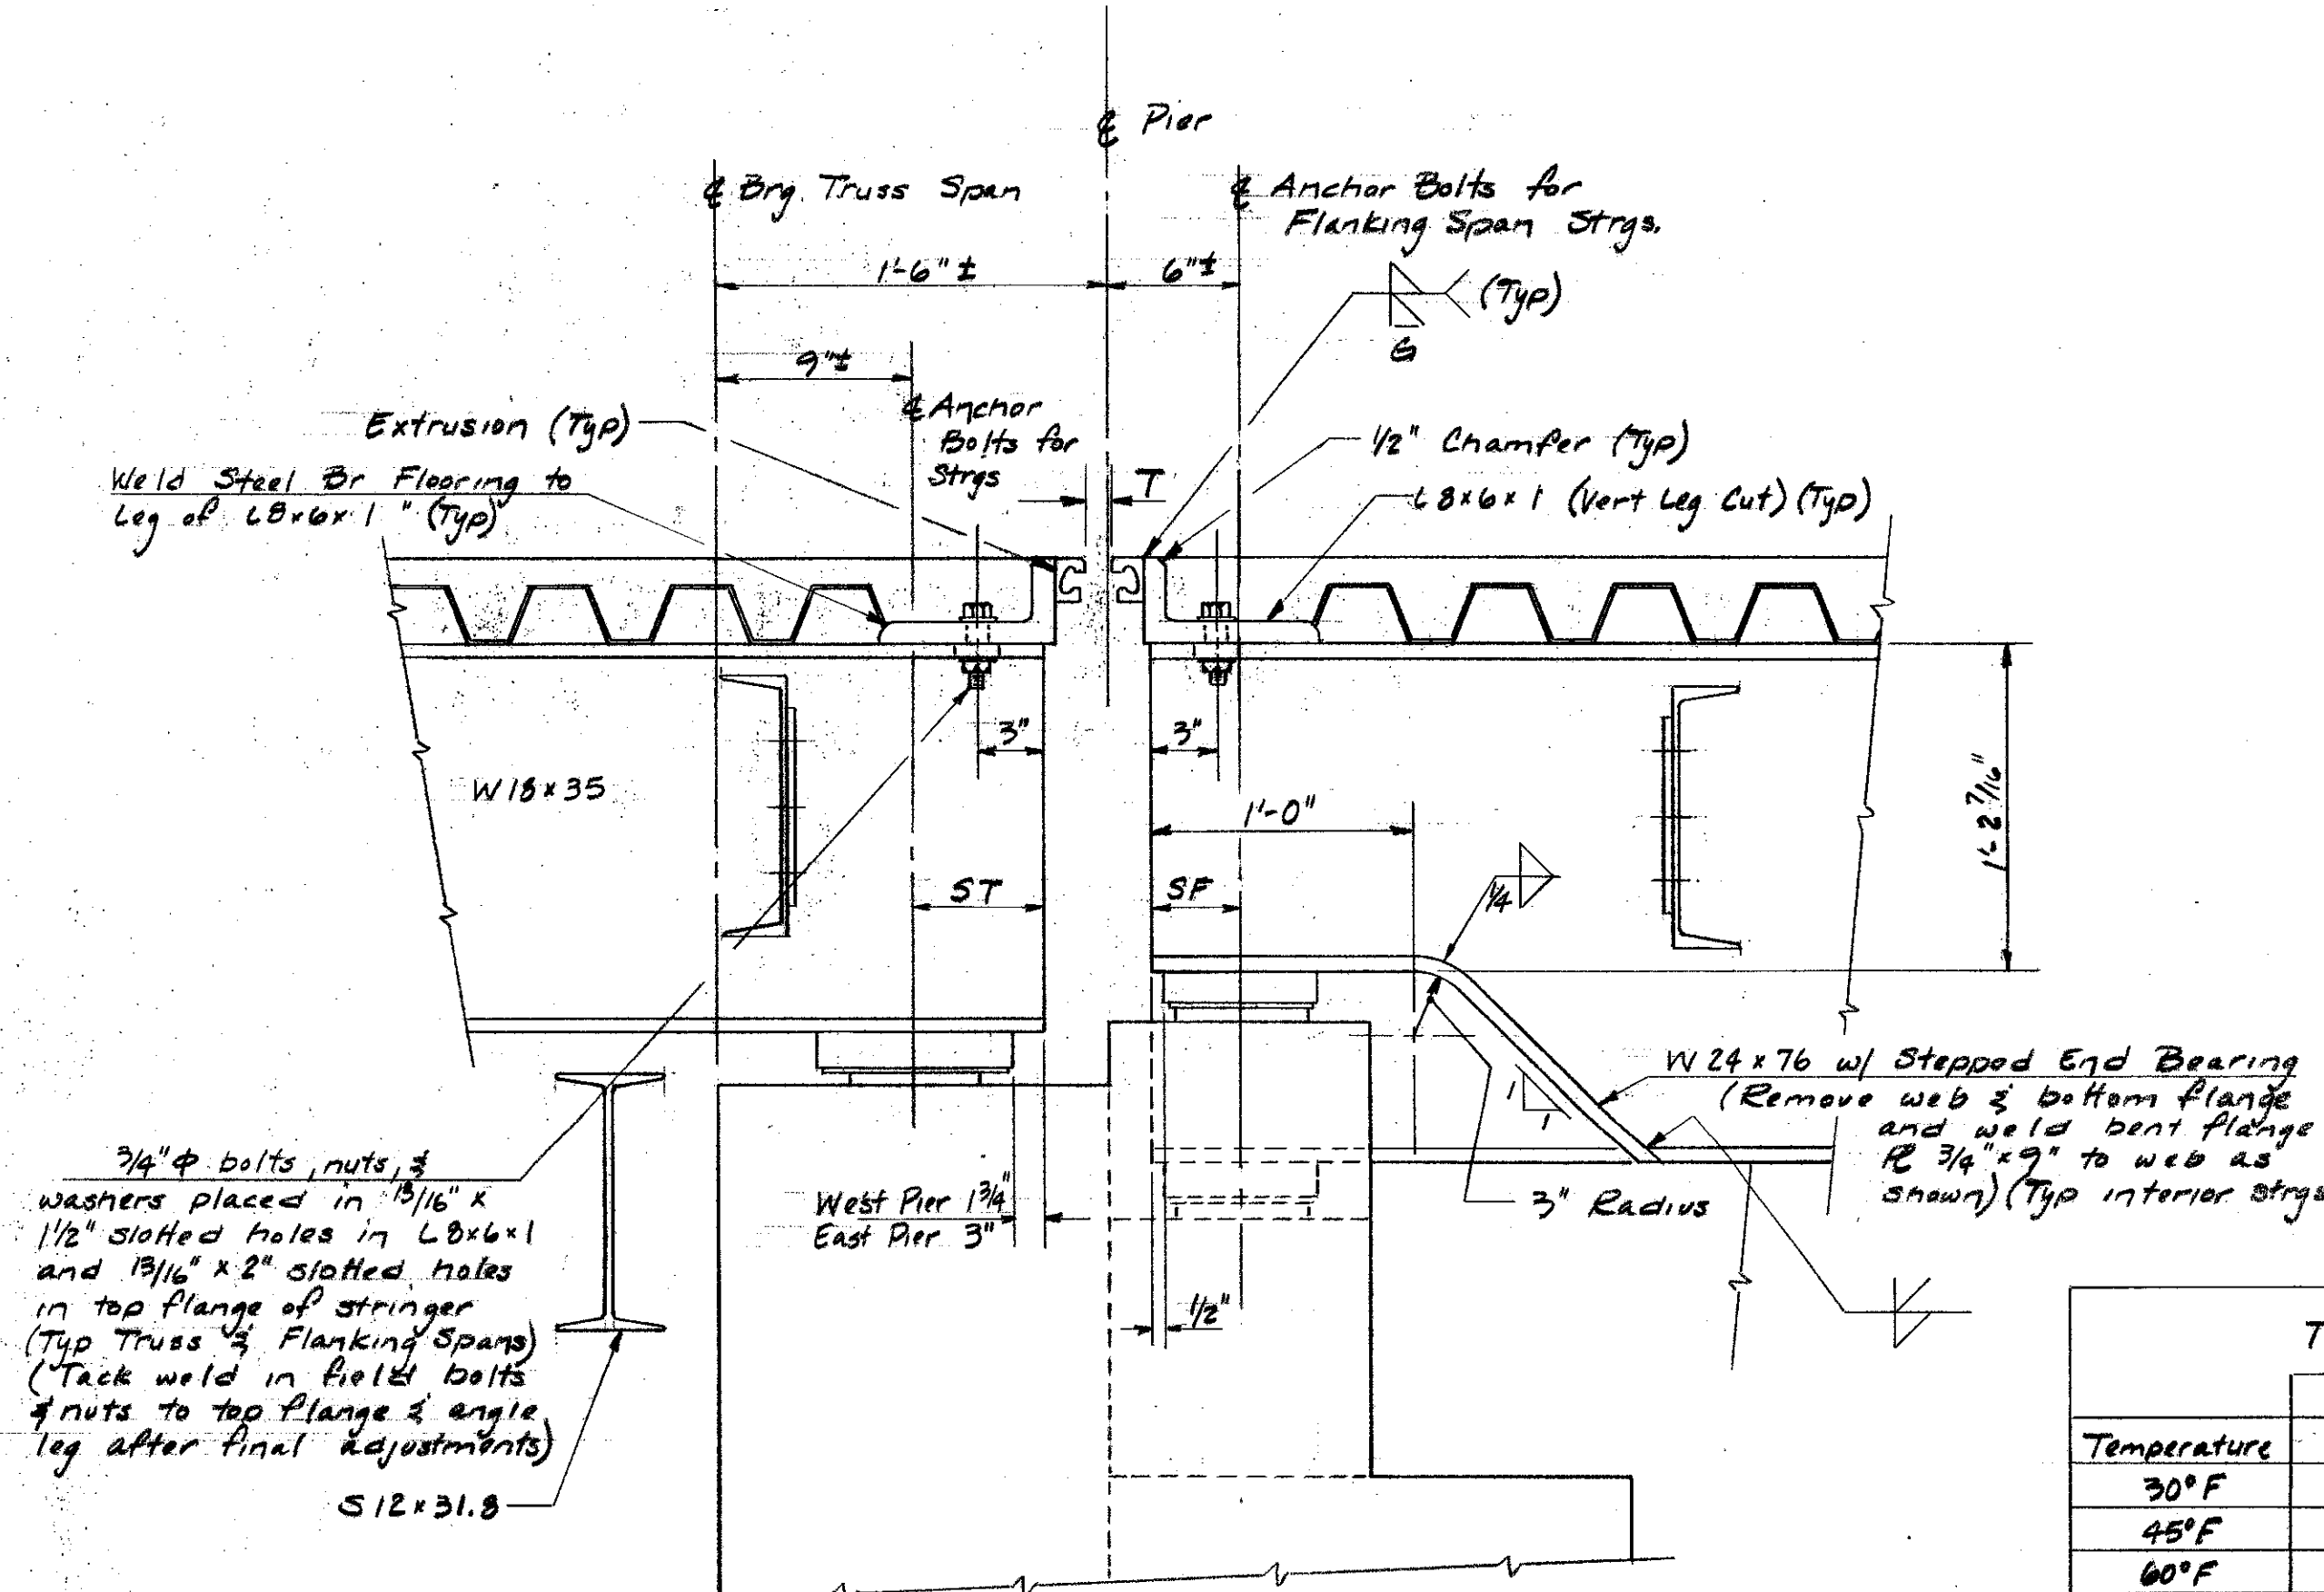 ℄ Pier
℄ Brg. Truss Span
℄ Anchor Bolts for
Flanking Span Strgs.
1'-6" ±
6"±
(Typ)
G
9"±
℄ Anchor
Bolts for
Strgs
T
Extrusion (Typ)
1/2" Chamfer (Typ)
Weld Steel Br Flooring to
Leg of L8x6x1" (Typ)
L 8x6x1 (Vert Leg Cut) (Typ)
3"
3"
W 18 x 35
1'-0"
1'-2 7/16"
ST
SF
1/4
W 24 x 76 w/ Stepped End Bearing
(Remove web & bottom flange
and weld bent flange
℄ 3/4" x 9" to web as
shown) (Typ interior strgs
1
1
3/4" Φ bolts, nuts, &
washers placed in 13/16" x
1 1/2" slotted holes in L 8x6x1
and 13/16" x 2" slotted holes
in top flange of stringer
(Typ Truss & Flanking Spans)
(Tack weld in field bolts
& nuts to top flange & angle
leg after final adjustments)
West Pier 1 3/4"
East Pier 3"
3" Radius
1/2"
S 12 x 31.8
T
Temperature
30°F
45°F
60°F